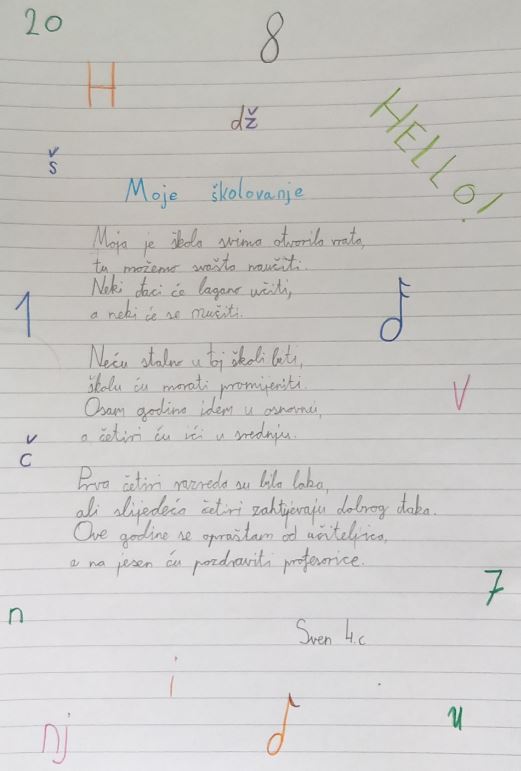 20
8
H
dž
HELLO!
š
Moje školovanje
Moja je škola svima otvorila vrata,
tu možemo svašta naučiti.
Neki đaci će lagano učiti,
a neki će se mučiti.
1
Neću stalno u toj školi biti,
školu ću morati promijeniti.
Osam godina idem u osnovnu,
a četiri ću ići u srednju.
V
č
Prva četiri razreda su bila laka,
ali slijedeća četiri zahtjevaju dobrog đaka.
Ove godine se opraštam od učiteljica,
a na jesen ću pozdraviti profesorice.
7
n
Sven 4.c
i
u
nj